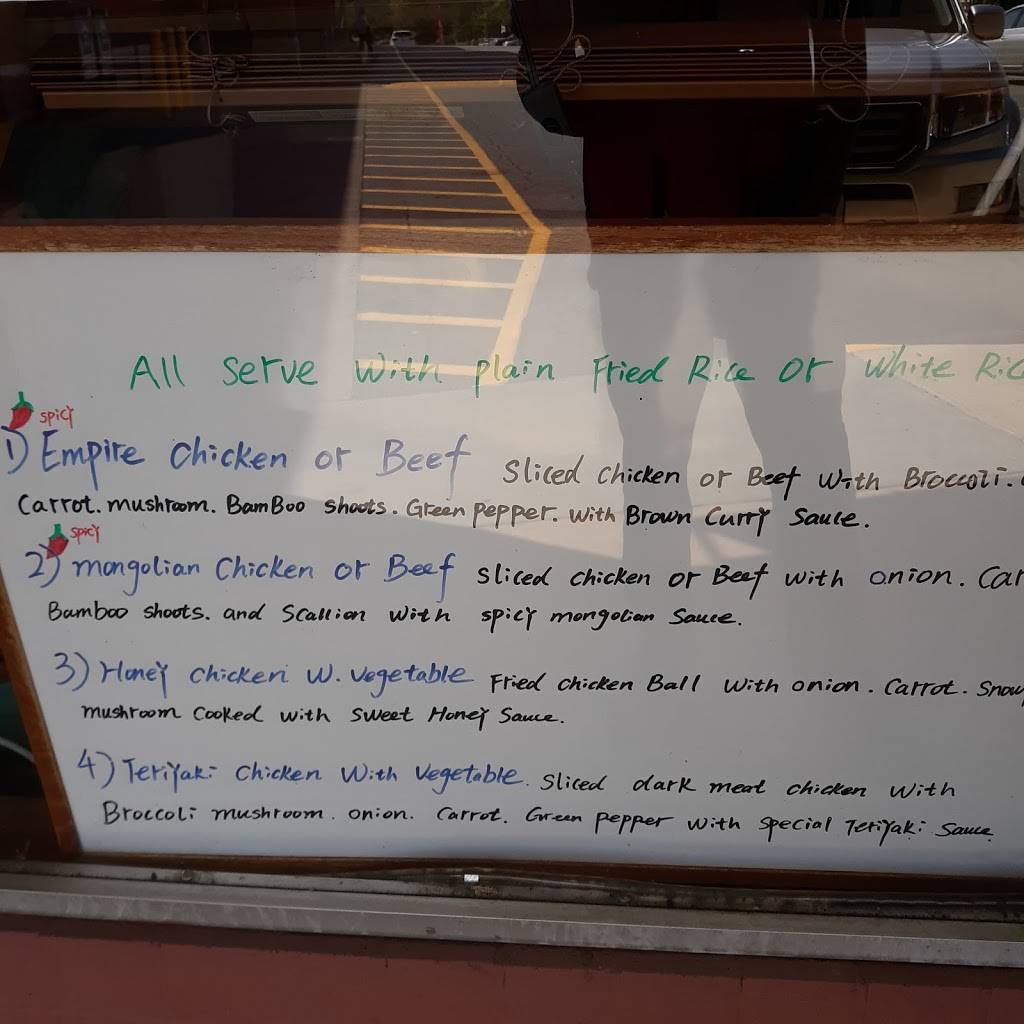 All Serve With plain Fried Rice Or White Ric
spicy
1) Empire Chicken or Beef Sliced Chicken or Beef With Broccoli.
Carrot. mushroom. BamBoo shoots. Green pepper. With Brown Curry Sauce.
spicy
2) mongolian Chicken or Beef Sliced chicken or Beef with onion. Car
Bamboo shoots. and Scallion With spicy mongolian Sauce.
3) Honey Chicken W. Vegetable Fried Chicken Ball With onion. Carrot. Snow
mushroom Cooked with Sweet Honey Sauce.
4) Teriyaki Chicken With Vegetable. Sliced dark meat chicken With
Broccoli mushroom. onion. Carrot. Green pepper with Special Teriyaki Sauce